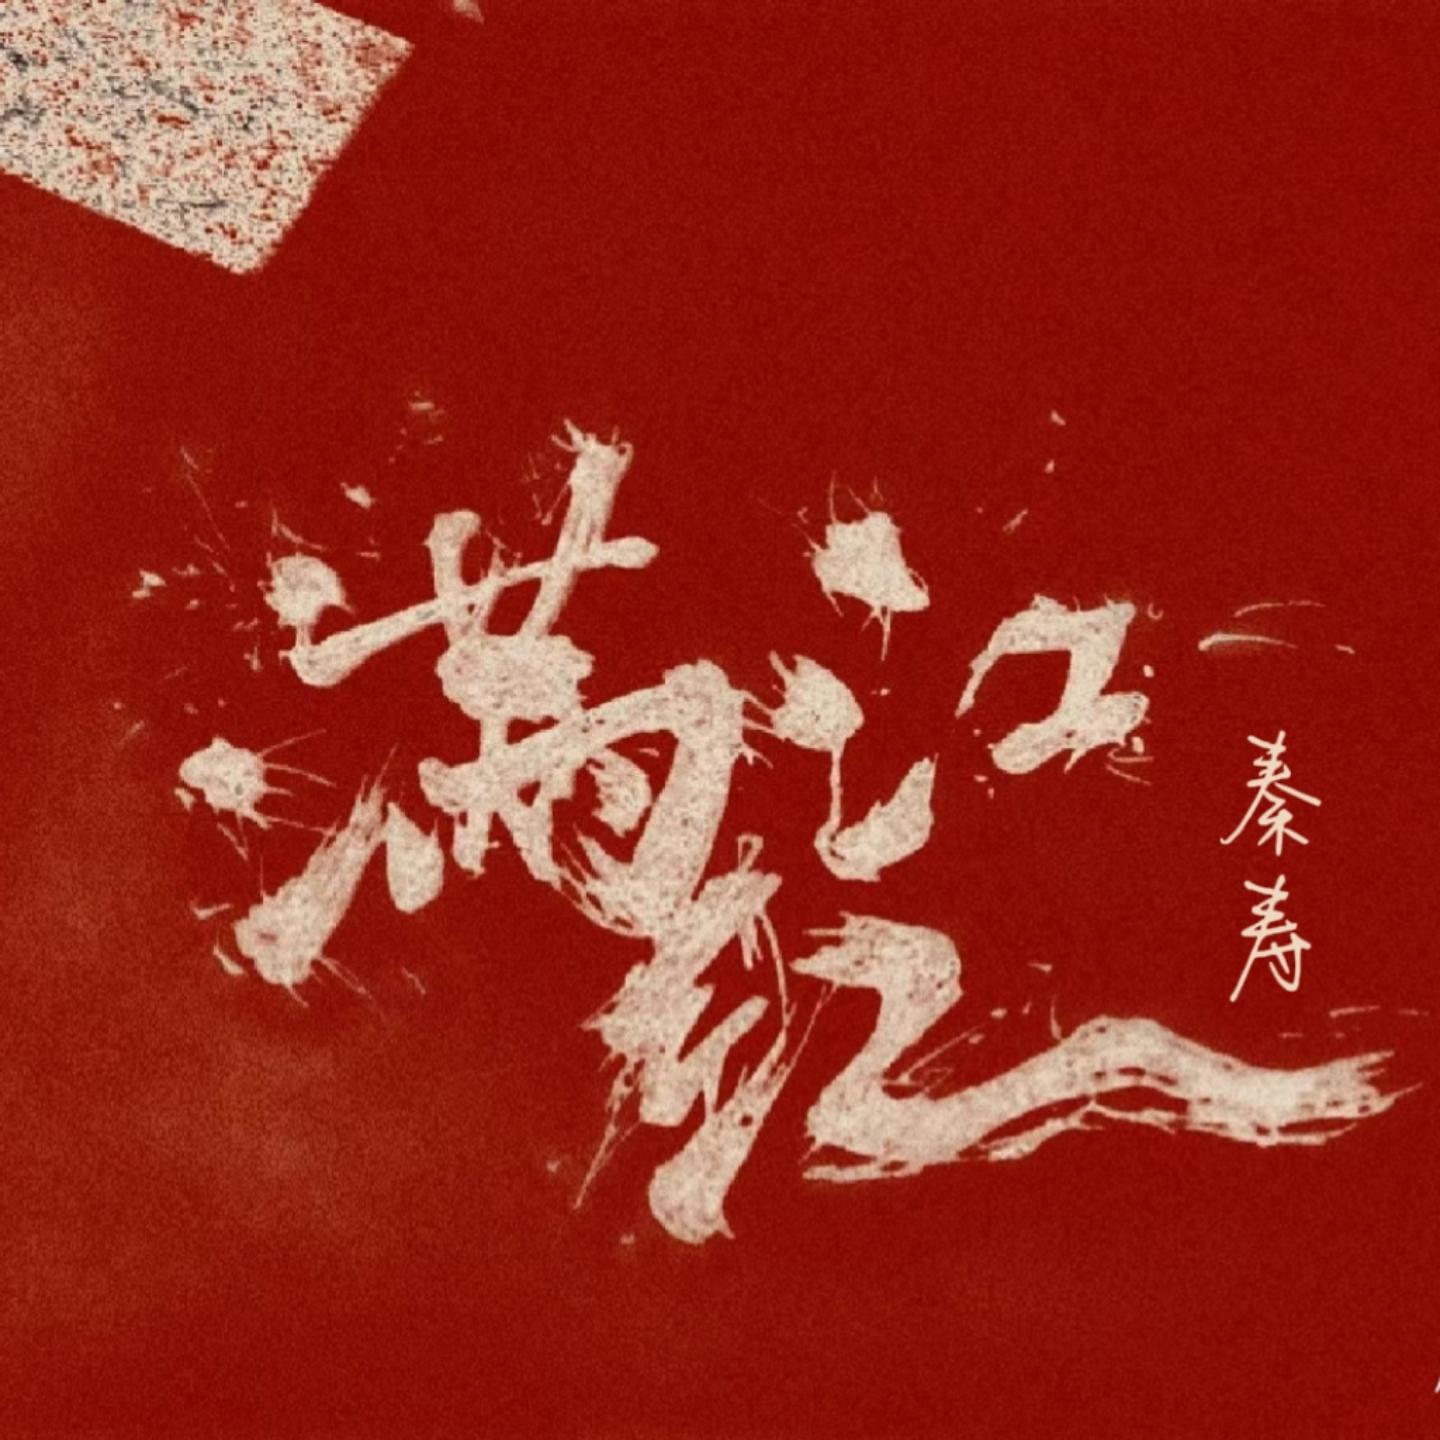 满江红
秦寿